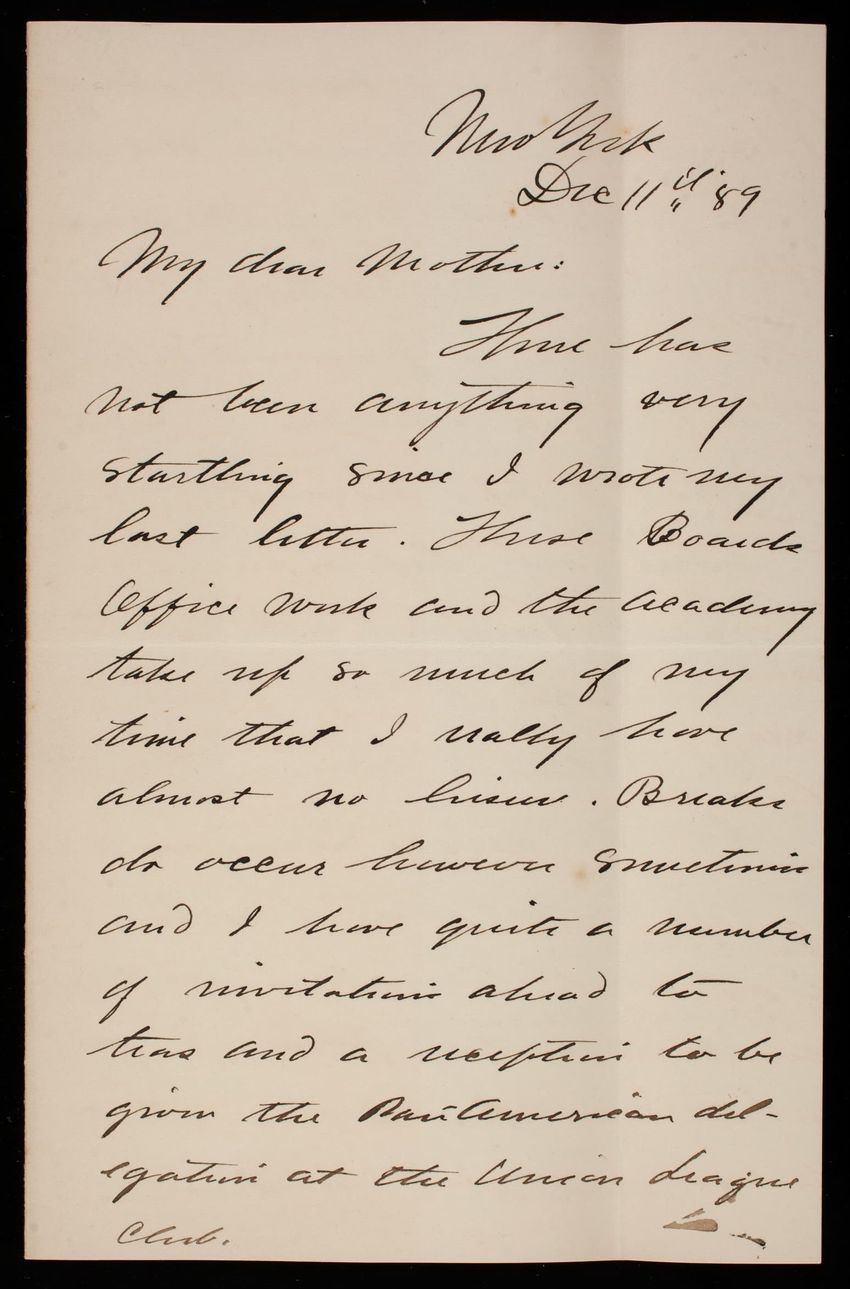 New York
Dec 11th '89
My dear Mother:
There has
not been anything very
startling since I wrote my
last letter. These Boards
Office work and the Academy
take up so much of my
time that I really have
almost no leisure. Breaks
do occur however sometimes
and I have quite a number
of invitations ahead to
teas and a reception to be
given the Pan American del-
egation at the Union League
Club.